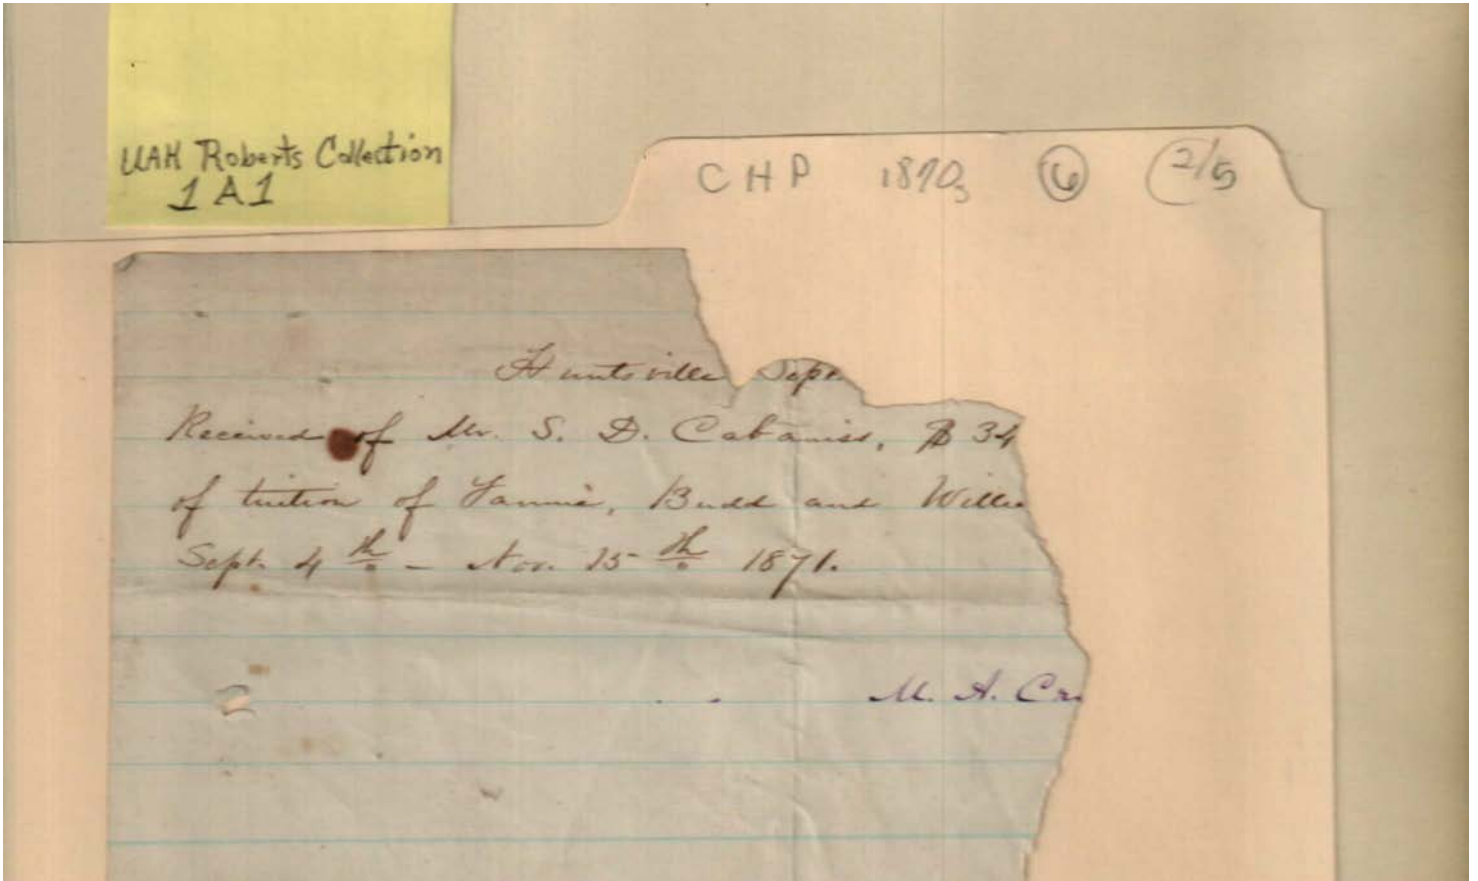 UAH Roberts Collection
1A1
CHP 1870s 6 (2/5
Huntsville Sept
Received of Mr. S. D. Cabaniss, $ 34
of tuition of Fannie, Budd and Willie
Sept. 4th – Nov. 15th 1871.
M. A. Cr